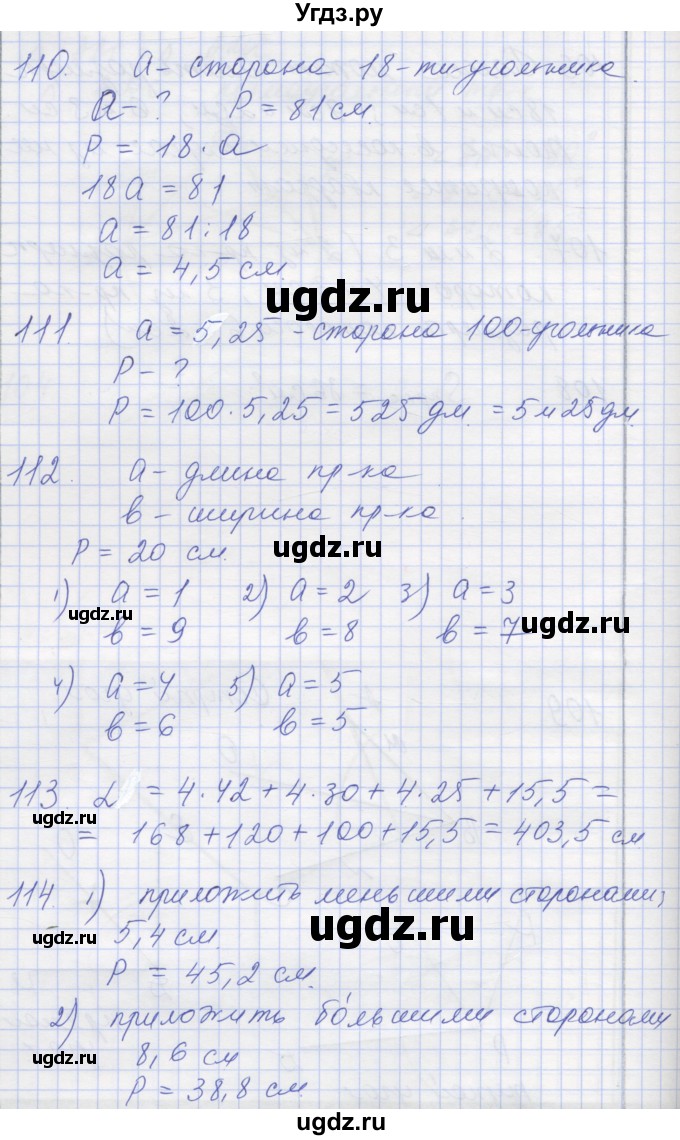 Угдз.ру
110. a - сторона 18-ти-угольника.
a - ? P = 81 см.
P = 18 · a
18a = 81
a = 81 : 18
a = 4,5 см.
ugdz.ru
111 a = 5,25 - сторона 100-угольника
P - ?
P = 100 · 5,25 = 525 дм. = 5 м 25 дм.
112. a - длина пр-ка.
в - ширина пр-ка.
P = 20 см.
ugdz.ru
1) a = 1 2) a = 2 3) a = 3
в = 9 в = 8 в = 7
ugdz.ru
ugdz.ru
4) a = 4 5) a = 5
в = 6 в = 5.
113 = 4·42 + 4·30 + 4·25 + 15,5 =
= 168 + 120 + 100 + 15,5 = 403,5 см
ugdz.ru
114 1) приложить меньшими сторонами;
5,4 см
P = 45,2 см.
ugdz.ru
2) приложить бо́льшими сторонами
8,6 см
P = 38,8 см.
ugdz.ru
ugdz.ru